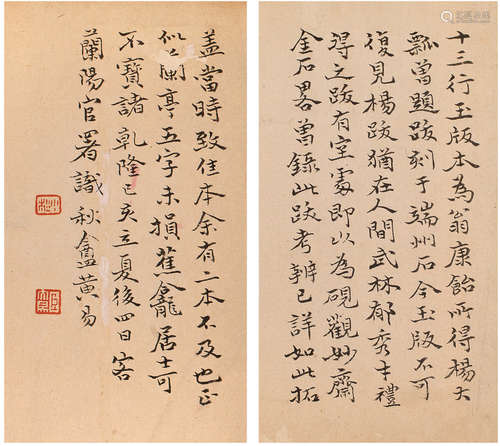 十三行玉版本為翁康飴所得楊大
瓢曾題跋刻于端州石今玉版不可
復見楊跋猶在人間武林郁秀才禮
得之跋有空處即以為硯觀妙齋
金石畧曾錄此跋考辨已詳如此拓
蓋當時致佳本余有二本不及也正
似蘭亭五字未損蕉龕居士可
不寶諸乾隆己亥立夏後四日客
蘭陽官署識秋盦黃易